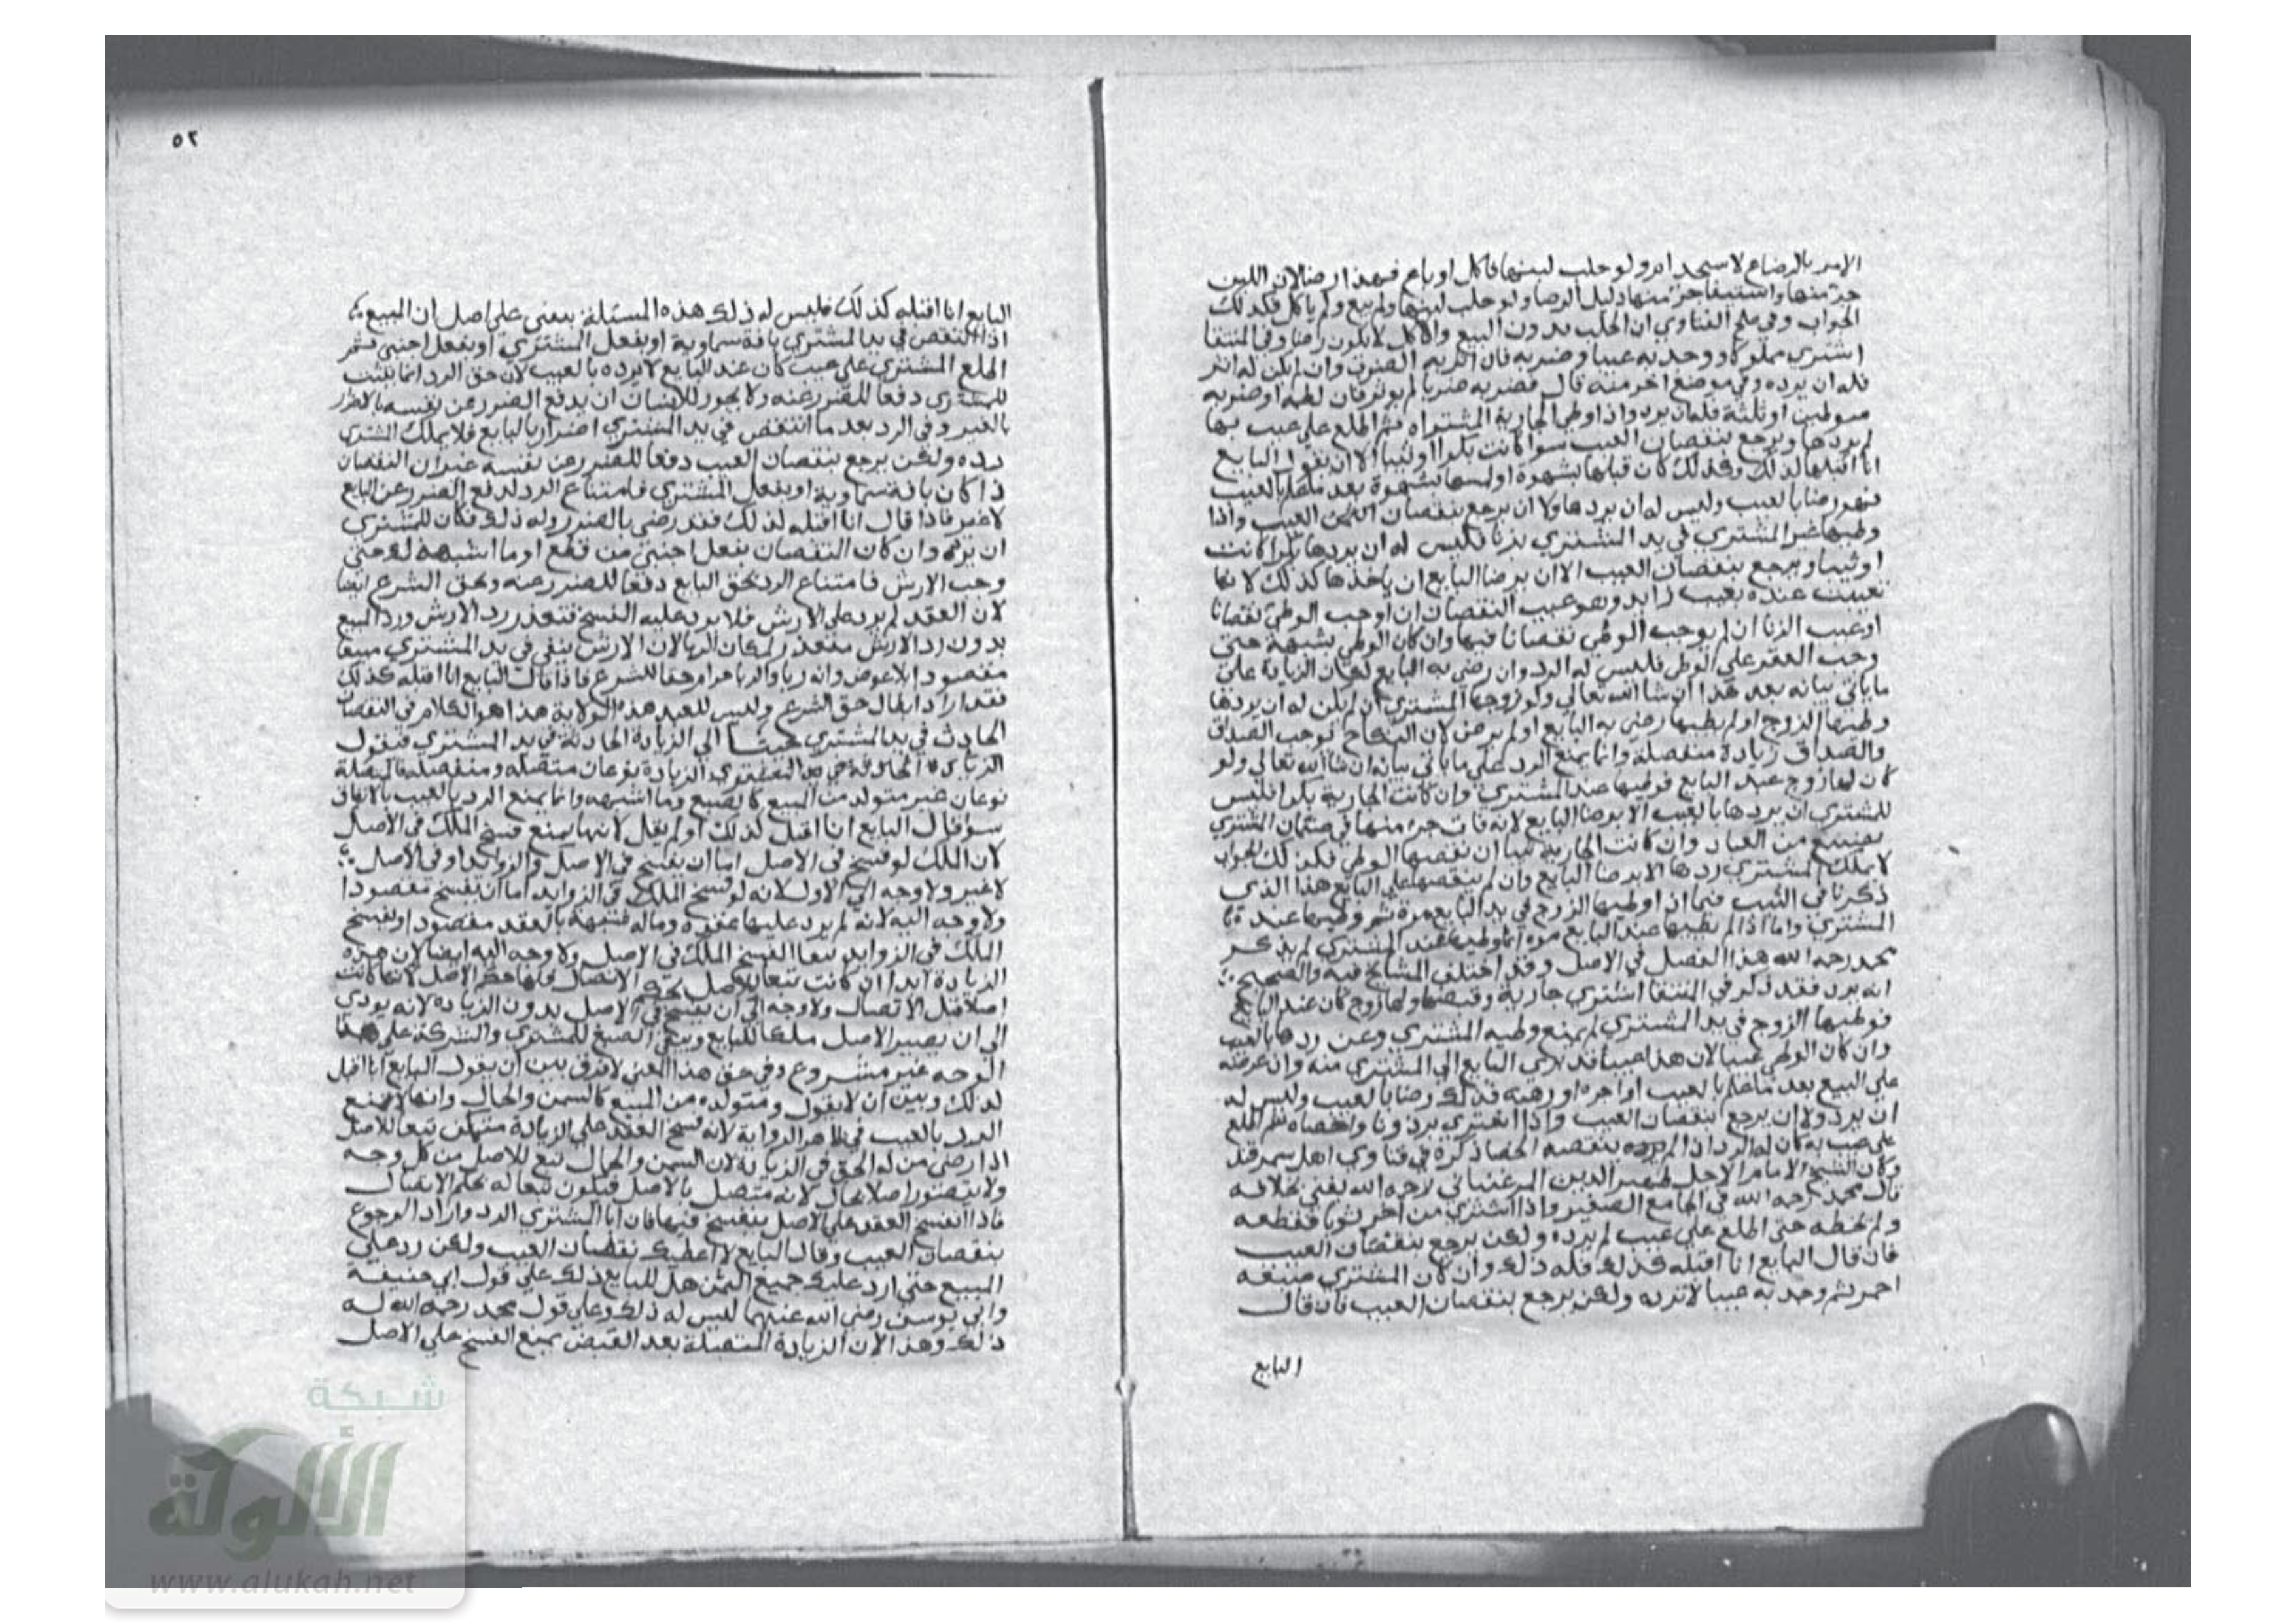 الامر بالرضاع لا ولو حلب لبنها فاكل او باع فهذا رضا لان اللبن
جزء منها واستيفا جزء منها دليل الرضا ولو حلب لبنها ولم يبع ولم ياكل فكذلك
الجواب وفي الفتاوي ان الحلب بدون البيع والاكل لا يكون رضا وفي المنتقا
اشتري مملوكا ووجد به عيبا وضربه فان اثر به الضرب وان لم يكن له اثر
فله ان يرده وفي موضع اخر منه قال فضربه ضربا لم يوثر فان لطمه او ضربه
سوطين او ثلثة فله ان يرد واذا وطي الجارية المشتراه ثم اطلع علي عيب بها
لم يردها ويرجع بنقصان العيب سوا كانت بكرا او ثيبا الا ان يقول البايع
انا اقبلها كذلك وكذلك ان قبلها بشهوة او لمسها بشهوة بعد بالعيب
فهو رضا بالعيب وليس له ان يردها ولا ان يرجع بنقصان العيب واذا
وطيها غير المشتري في يد المشتري بزنا فليس له ان يردها بكرا كانت
او ثيبا ويرجع بنقصان العيب الا ان يرضا البايع ان ياخذها كذلك لانها
تعيبت عنده بعيب زايد وهو عيب النقصان ان اوجب الوطي نقصانا
او عيب الزنا ان لم يوجب الوطي نقصانا فيها وان كان الوطي بشبهة حتي
وجب العقر علي الوطي فليس له الرد وان رضي به البايع لمكان الزيادة علي
ما ياتي بيانه بعد هذا ان شا الله تعالي ولو زوجها المشتري لم يكن له ان يردها
وطيها الزوج او لم يطيها رضي به البايع او لم يرض لان النكاح يوجب الصداق
والصداق زيادة منفصلة وانها تمنع الرد علي ما ياتي بيانه ان شا الله تعالي ولو
كان لها زوج عند البايع فوطيها عند المشتري وان كانت الجارية بكرا فليس
للمشتري ان يردها بالعيب الا برضا البايع لانه فات جزء منها في ضمان المشتري
وان كانت الجارية ثيبا ان نقصها الوطي فكذلك الجواب
لا يملك المشتري ردها الا برضا البايع وان لم ينقصها علي البايع هذا الذي
ذكرنا في الثيب فيما اذا وطيها الزوج في يد البايع مرة ثم وطيها عند
المشتري واما اذا لم يطيها عند البايع مرة انما وطيها عند المشتري لم يذكر
محمد رحمه الله هذا الفصل في الاصل وقد اختلف المشايخ فيه والصحيح
انه يرد فقد ذكر في المنتقا اشتري جارية وقبضها ولها زوج كان عند البايع
فوطيها الزوج في يد المشتري لم يمنع وطيه المشتري وعن ردها بالعيب
وان كان الوطي عيبا لان هذا عيبا قد البايع الي المشتري منه وان عرضه
علي البيع بعد ما علم بالعيب او اجره او رهنه فذلك رضا بالعيب وليس له
ان يرد ولا ان يرجع بنقصان العيب واذا اشتري برذونا واخصاه ثم اطلع
علي عيب به كان له الرد اذا لم ينقصه الخصا ذكره في فتاوي اهل سمرقند
وكان الشيخ الامام الاجل ظهير الدين المرغيناني رحمه الله يفتي بخلافه
قال محمد رحمه الله في الجامع الصغير واذا اشتري من اخر ثوبا فقطعه
ولم يخطه حتي اطلع علي عيب لم يرده ولكن يرجع بنقصان العيب
فان قال البايع انا اقبله كذلك فله ذلك وان كان المشتري صبغه
احمر ثم وجد به عيبا لا ترده ولكن يرجع بنقصان العيب فان قال
البايع
٥٢
البايع انا اقبله كذلك فليس له ذلك هذه المسئلة تبتني علي اصل ان المبيع
اذا انتقص في يد المشتري بافة سماوية او بفعل المشتري او بفعل اجنبي ثم
اطلع المشتري علي عيب كان عند البايع لا يرده بالعيب لان حق الرد انما يثبت
للمشتري دفعا للضرر عنه ولا يجوز للانسان ان يدفع الضرر عن نفسه بالاضرار
بالغير وفي الرد بعد ما انتقص في يد المشتري اضرار بالبايع فلا يملك المشتري
رده ولكن يرجع بنقصان العيب دفعا للضرر عن نفسه غير ان النقصان
اذا كان بافة سماوية او بفعل المشتري فامتناع الرد لدفع الضرر عن البايع
لا غير فاذا قال انا اقبله كذلك فقد رضي بالضرر وله ذلك فكان للمشتري
ان يرده وان كان النقصان بفعل اجنبي من قطع او ما اشبهه حتي
وجب الارش فامتناع الرد لحق البايع دفعا للضرر عنه ولحق الشرع ايضا
لان العقد لم يرد علي الارش فلا يرد عليه الفسخ فتعذر رد الارش ورد المبيع
بدون رد الارش متعذر لمكان الربا لان الارش يبقي في يد المشتري مبيعا
مقصودا بلا عوض وانه ربا والربا حرام حقا للشرع فاذا قال البايع انا اقبله كذلك
فقد اراد ابطال حق الشرع وليس للعبد هذه الولاية هذا هو الكلام في النقصان
الحادث في يد المشتري جينا الي الزيادة الحادثة في يد المشتري فنقول
الزيادة الحادثة في يد المشتري الزيادة نوعان متصلة ومنفصلة فالمتصلة
نوعان غير متولدة من المبيع كالصبغ وما اشبهه وانها تمنع الرد بالعيب بالاتفاق
سوا قال البايع انا اقبل كذلك او لم يقل لانها تمنع فسخ الملك في الاصل
لان الملك لو فسخ في الاصل اما ان يفسخ في الاصل والزوايد او في الاصل
لا غير ولا وجه الي الاول لانه لو فسخ الملك في الزوايد اما ان يفسخ مقصودا
ولا وجه اليه لانه لم يرد عليها عقد وماله شبهة بالعقد مقصودا او يفسخ
الملك في الزوايد تبعا لفسخ الملك في الاصل ولا وجه اليه ايضا لان هذه
الزيادة ابدا ان كانت تبعا للاصل بحكم الاتصال فلها حكم الاصل لانها كانت
اصلا قبل الاتصال ولا وجه الي ان يفسخ في الاصل بدون الزيادة لانه يودي
الي ان يصير الاصل ملكا للبايع ويبقي الصبغ للمشتري والشركة علي هذا
الوجه غير مشروع وفي حق هذا المعني لا فرق بين ان يقول البايع انا اقبل
كذلك وبين ان لا يقول ومتولدة من المبيع كالسمن والجمال وانها لا تمنع
الرد بالعيب في ظاهر الرواية لانه فسخ العقد علي الزيادة متمكن تبعا للاصل
اذا رضي من له الحق في الزيادة لان السمن والجمال تبع للاصل من كل وجه
ولا يتصور اصلا بحال لانه متصل بالاصل فيكون تبعا له بحكم الاتصال
فاذا انفسخ العقد علي الاصل ينفسخ فيها فان ابا المشتري الرد واراد الرجوع
بنقصان العيب وقال البايع لا اعطيك نقصان العيب ولكن رد علي
المبيع حتي ارد عليك جميع الثمن هل للبايع ذلك علي قول ابي حنيفة
وابي يوسف رضي الله عنهما ليس له ذلك وعلي قول محمد رحمه الله له
ذلك وهذا لان الزيادة المتصلة بعد القبض تمنع الفسخ علي الاصل
شبكة
الألوكة
www.alukah.net